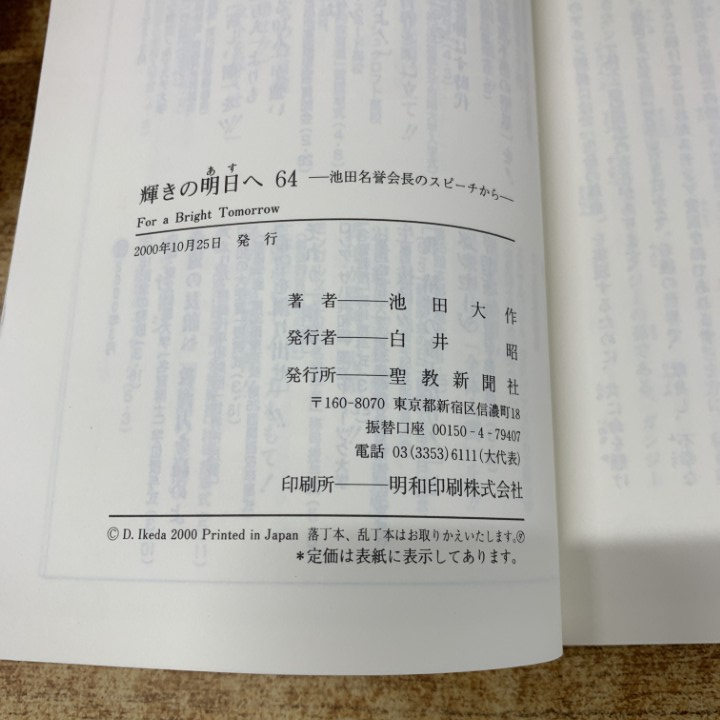 輝きの明日へ 64 ―池田名誉会長のスピーチから―
あす
For a Bright Tomorrow
2000年10月25日 発 行
著 者―――池 田 大 作
発行者―――白 井 昭
発行所―――聖 教 新 聞 社
〒160-8070 東京都新宿区信濃町18
振替口座 00150-4-79407
電話 03(3353)6111(大代表)
印刷所―――明和印刷株式会社
© D. Ikeda 2000 Printed in Japan 落丁本、乱丁本はお取りかえいたします。
*定価は表紙に表示してあります。